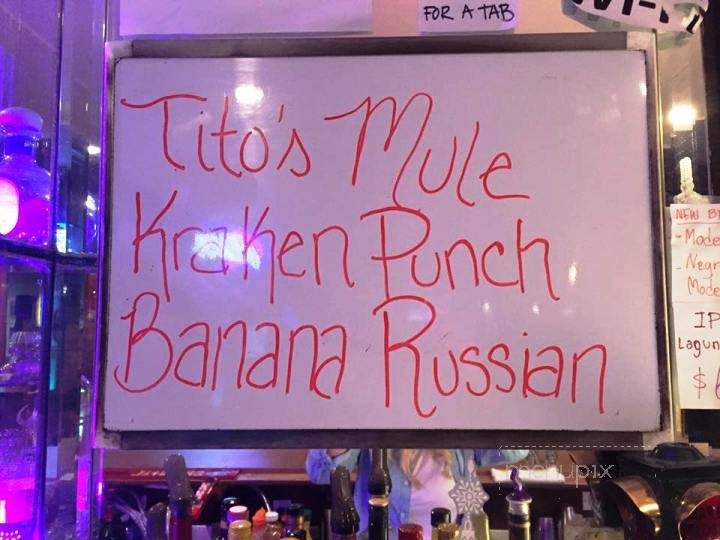 FOR A TAB
Tito's Mule
Kraken Punch
Banana Russian
NEW B
- Mode
- Negr
Mode
IP
Lagun
$
menupix